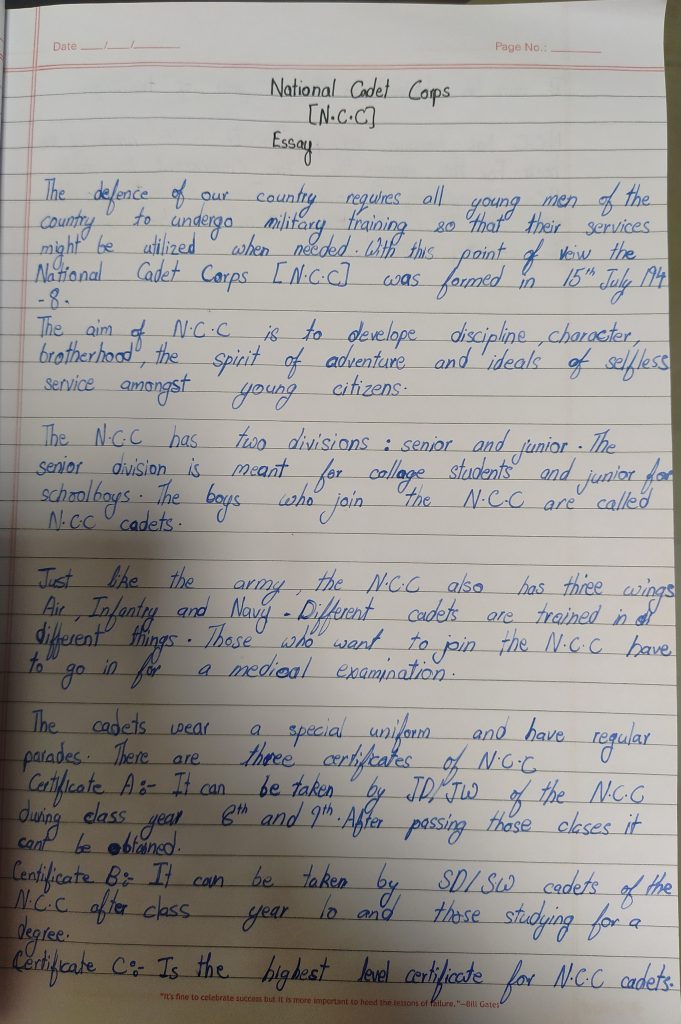 Date __/__/____
Page No.: ______
National Cadet Corps
[N.C.C]
Essay
The defence of our country requires all young men of the
country to undergo military training so that their services
might be utilized when needed. With this point of veiw the
National Cadet Corps [N.C.C] was formed in 15th July 194
-8.
The aim of N.C.C is to develope discipline, character,
brotherhood, the spirit of adventure and ideals of selfless
service amongst young citizens.
The N.C.C has two divisions : senior and junior. The
senior division is meant for collage students and junior for
schoolboys. The boys who join the N.C.C are called
N.C.C cadets.
Just like the army, the N.C.C also has three wings
Air, Infantry and Navy. Different cadets are trained in
different things. Those who want to join the N.C.C have
to go in for a medical examination.
The cadets wear a special uniform and have regular
parades. There are three certificates of N.C.C
Certificate A:- It can be taken by JD/JW of the N.C.C
during class year 8th and 9th. After passing those clases it
cant be obtained.
Centificate B:- It can be taken by SD/SW cadets of the
N.C.C after class year 10 and those studying for a
degree.
Certificate C:- Is the highest level certificate for N.C.C cadets.
"It's fine to celebrate success but it is more important to heed the lessons of failure."—Bill Gates